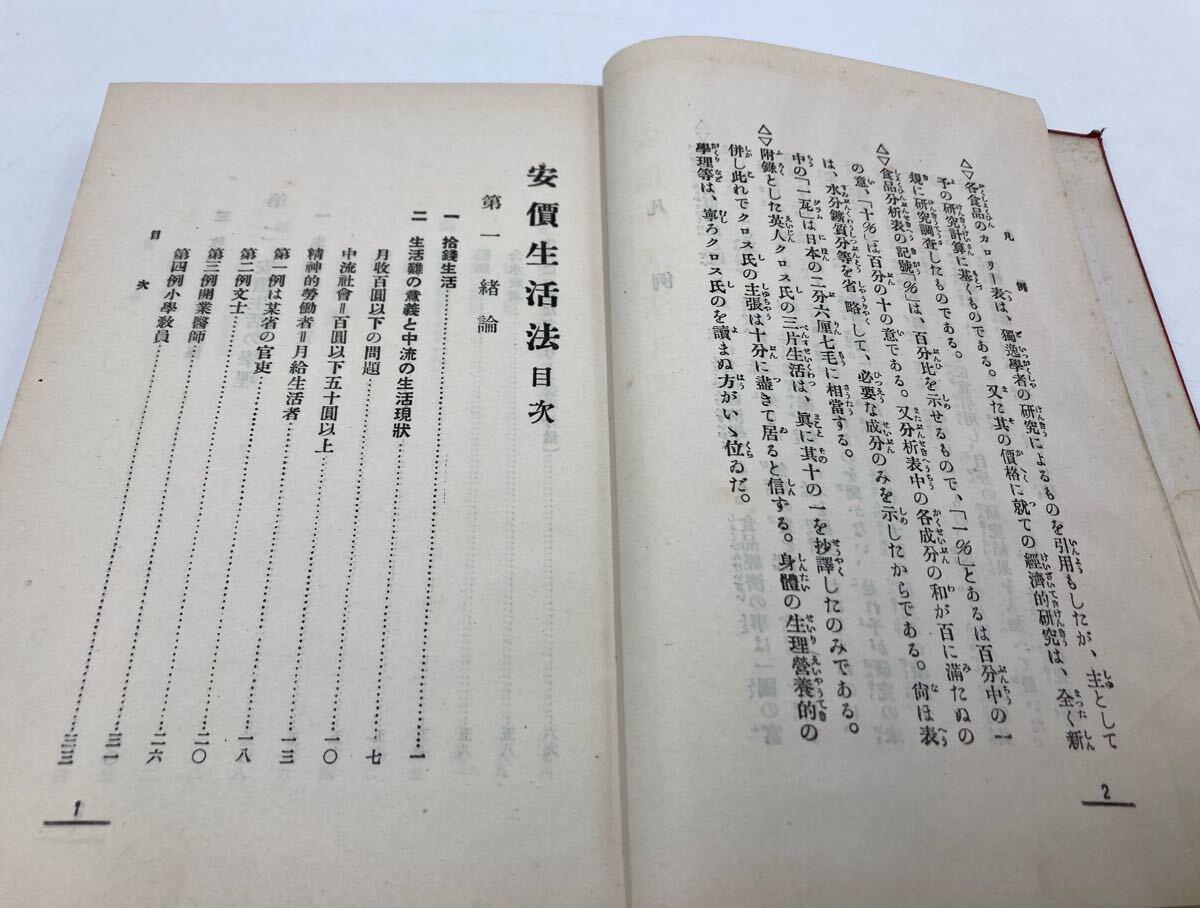 凡例
△▽各食品のカロリー表は、獨逸學者の研究によるものを引用もしたが、主として
予の研究計算に基くものである。又た其の價格に就ての經濟的研究は、全く新
規に研究調査したものである。
△▽食品分析表の記號「%」は、百分比を示せるもので、「一%」とあるは百分中の一
の意、「十%」は百分の十の意である。又分析表中の各成分の和が百に滿たぬの
は、水分鑛質分等を省略して、必要な成分のみを示したからである。尙ほ表
中の「一瓦」は日本の二分六厘七毛に相當する。
△▽附錄とした英人クロス氏の三片生活は、眞に其十の一を抄譯したのみである。
併し此れでクロス氏の主張は十分に盡きて居ると信ずる。身體の生理營養的の
學理等は、寧ろクロス氏のを讀まぬ方がいゝ位ゐだ。
2
安價生活法目次
第一 緒論
一 拾錢生活……一
二 生活難の意義と中流の生活現狀……七
月收百圓以下の問題……一〇
中流社會＝百圓以下五十圓以上……一三
精神的勞働者＝月給生活者……一八
第一例は某省の官吏……二〇
第二例文士……二六
第三例開業醫師……三一
第四例小學敎員……三三
目次
1